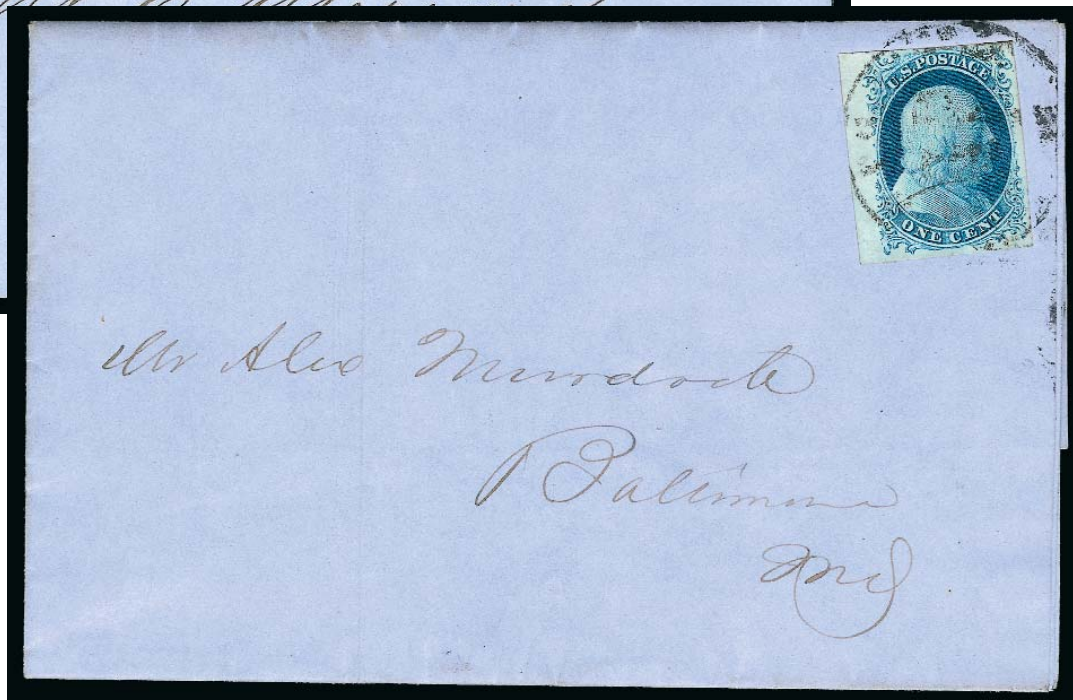 U.S. POSTAGE
ONE CENT
Mr Alex Murdock
Baltimore
Md